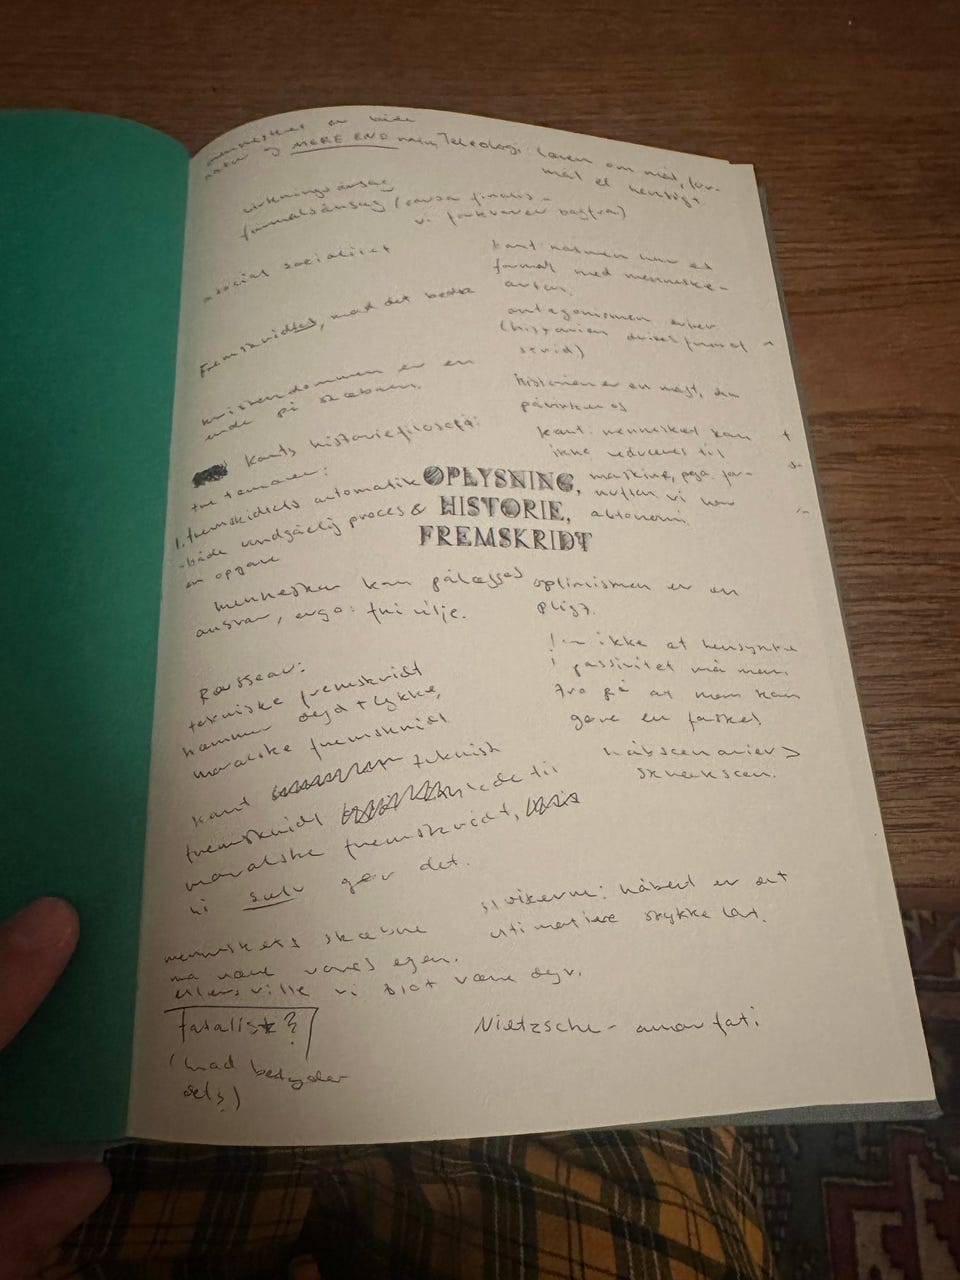 mennesket er både
natur og MERE END natur
Teleologi: læren om mål, for-
mål el hensigt
virkningsårsag
formålsårsag (causa finalis -
vi forklarer bagfra)
asocial socialitet
Fremskridtet, mod det bedre
kristendommen er en
ende på skæbnen.
kants historiefilosofi:
tre temaer:
1. fremskridtets automatik
- både uundgåelig proces &
en opgave
mennesker kan pålægges
ansvar, ergo: fri vilje.
Rousseau:
tekniske fremskridt
hæmmer dyd + lykke,
moralske fremskridt
kant teknisk
fremskridt lede til
moralske fremskridt,
vi selv gør det.
menneskets skæbne
må være vores egen.
ellers ville vi blot være dyr.
fatalist?
(hvad betyder
det?)
kant: naturen har et
formål med menneske-
arten.
antagonismen
(historien drives frem af
strid)
historien er en magt, der
påvirker os
kant: mennesket kan
ikke reduceres til
maskine, pga. for-
nuften vi har
autonomi
OPLYSNING,
HISTORIE,
FREMSKRIDT
optimismen er en
pligt.
ikke at hensynke
i passivitet må man
tro på at man kan
gøre en forskel
håbscenarier >
skrækscen.
stoikerne: håbet er det
ultimative stykke lort.
Nietzsche - amor fati